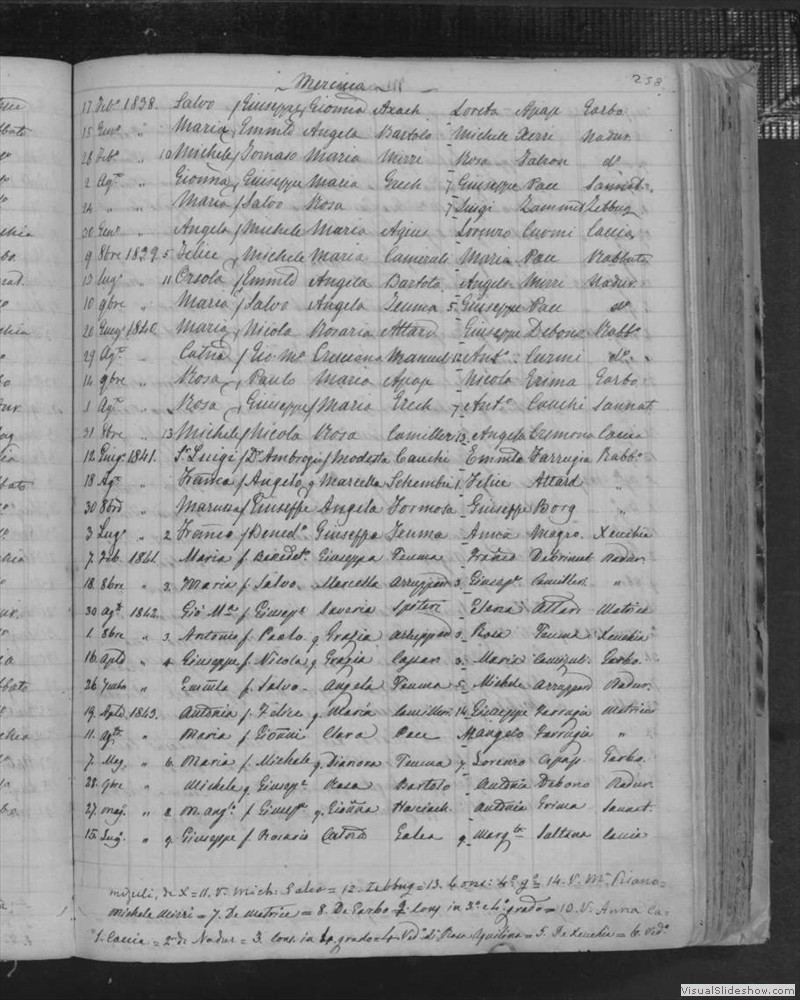 Mercieca
258
17 Feb. 1838. Salvo f Giuseppe Gionna Axach Loreta Apap Garbo
15 Genº " Maria f Emmlo Angela Bartolo Michele Xerri Nadur
28 Febº " 10 Michele f Tomaso Maria Mizzi Rosa Falzon dº
2 Agº " Gionna f Giuseppe Maria Grech 7 Giuseppe Pace Sannat
24 " " Maria f Salvo Rosa 7 Luigi Zammit Zebbug
30 Genº " Angelo f Michele Maria Agius Lorenzo Cuomi Caccia
9 8bre 1839. 5 Felice f Michele Maria Camenzuli Maria Pace Rabbato
13 Lugº " 11 Orsola f Emmlo Angela Bartolo Angelo Mizzi Nadur
10 9bre " Maria f Salvo Angela Teuma 5 Giuseppe Pace dº
20 Giugº 1840. Maria f Nicola Rosaria Attard Giuseppe Debono Rabbº
29 Agº " Catna f Gio Mª Cresciana Manuel 12 Antº Curmi dº
14 9bre " Rosa f Paulo Maria Apap Nicola Grima Garbo
1 Agº " Rosa f Giuseppe f Maria Grech 7 Antº Cauchi Sannat
31 8bre " 13 Michele f Nicola Rosa Camilleri 12 Angela Cremona Caccia
12 Giugº 1841. Sr Luigi f Dr Ambrogio f Modesta Cauchi Emmla Farrugia Rabbº
18 Agº " Franca f Angelo q Marcella Schembri 1 Felice Attard "
30 8bre " Marussa f Giuseppe Angela Formosa Giuseppe Borg "
3 Lugº " 2 Franco f Benedº Giuseppa Teuma Anna Magro Xeuchia
7 Feb. 1841. Maria f. Benedetº Giuseppa Teuma Franco Debrincat Nadur.
18. 8bre " 3. Maria f. Salvo. Marcella Azzuppard 3. Giusepe Camilleri "
30 agº 1842. Gio Mª f. Giusepe Saveria Spiteri Elena Attard Matrice
1. 8bre " 3. Antonio f. Paolo q Grazia Azzuppard 3. Rosa Teuma Xeuchia
16. Aple " 4 Giuseppe f. Nicola q Grazia Capan 3. Maria Camizuli Garbo.
26 " Emmla f. Salvo. Angela Teuma 5. Michele Azzuppard Nadur.
19. Aple 1843. Antonia f. Felice q Maria Camilleri 14. Giuseppe Farrugia Matrice
11. agto " Maria f. Gionni Clara Pace Mangelo Farrugia "
7. Mag. " 6. Maria f. Michele q Dianora Teuma 7. Lorenzo Apap Garbo.
28. 9bre " Michele q Giusepe Rosa Bartolo Antonia Debono Nadur.
27. mag. " 2. M. angª f. Giusepe q. Gionna Antonio Grima Sannat.
15. Lugº " 9. Giuseppe f. Rosario Catna Galea 9. Margta Sultana Caccia
mizuli, de X = 11. V. Mich: Galea = 12. Zebbug = 13. 4 cons: 4º gº = 14. V. Mª Pisano =
Michele Mizzi = 7. De Matrice = 8. De Garbo 9. Cons in 3º e 4º grado = 10. V. Anna Ca-
1. Caccia = 2. de Nadur = 3. Cons. in 4 grado = 4. Vedº di Rosa Aquilina = 5. De Xeuchia = 6. Vedº
VisualSlideshow.com